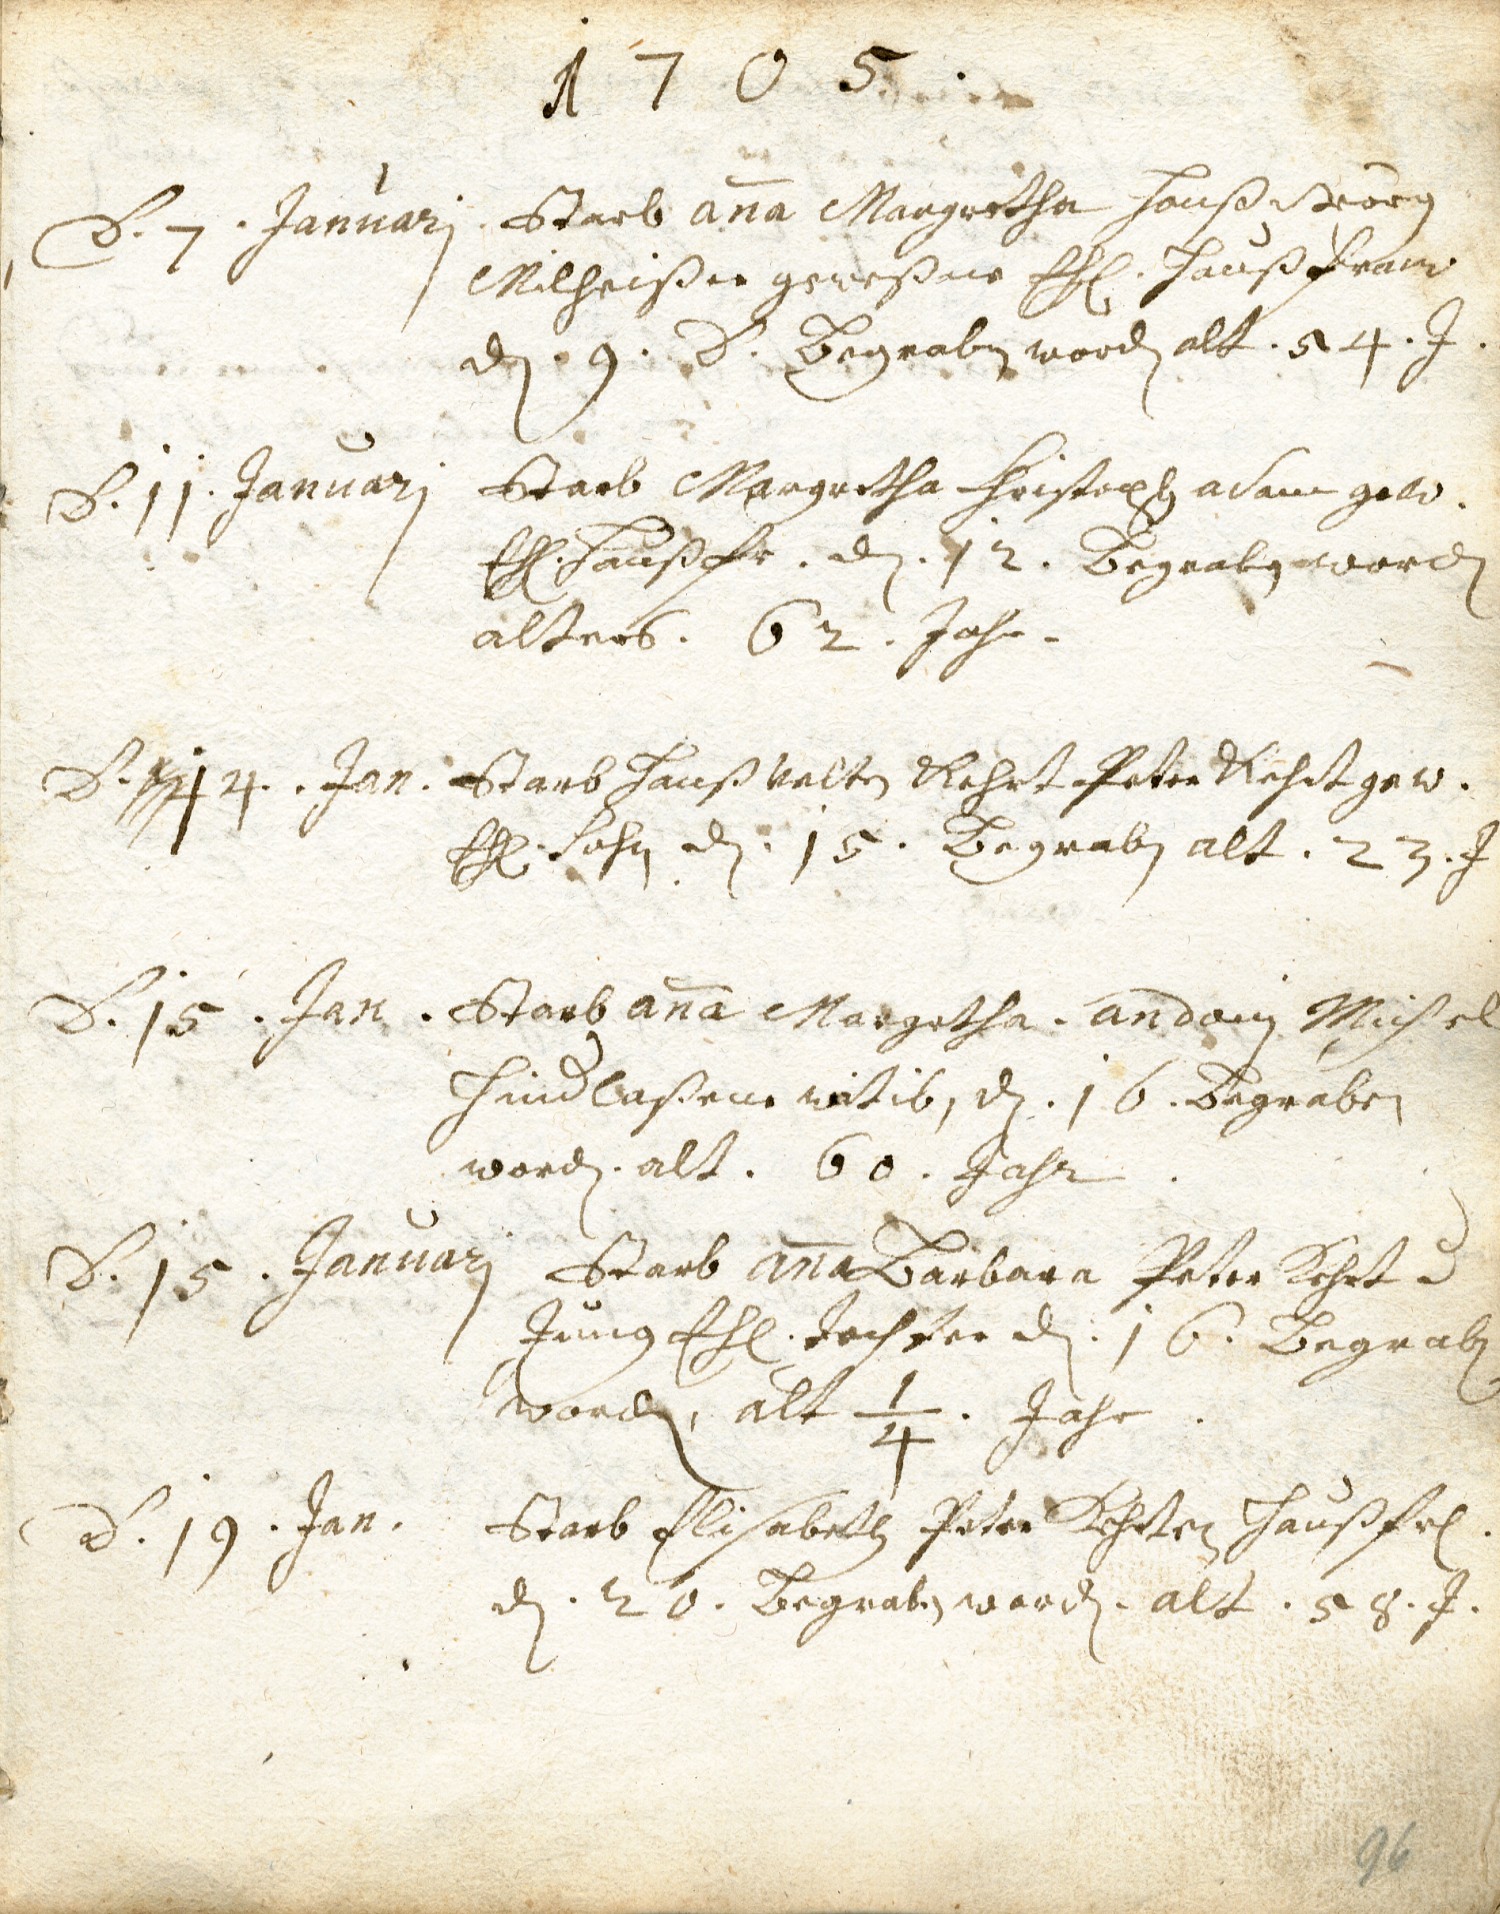 1705.
D. 7. Januarj Starb Aña Margretha Hanß Georg
Milheißer geweßene Ehl. Haußfraw
dn. 9. D. Begrabn wordn alt. 54. J.
D. 11. Januarj Starb Margretha Christoph Adam gew.
Ehl. Haußfr. dn. 12. Begrabn wordn
alters. 62. Jahr.
D. 14. Jan. Starb Hanß Velten Kehrt Peter Kehrt gew.
Ehl. Sohn dn. 15. Begrabn alt. 23. J
D. 15. Jan. Starb aña Margretha. andoni Michel
Hindlaßene witib, dn. 16. Begraben
wordn. alt. 60. Jahr.
D. 15. Januarj Starb aña Barbara Peter Kehrt d
Jung Ehl. Tochter dn. 16. Begrabn
wordn, alt 1/4. Jahr.
D. 19. Jan. Starb Elisabeth Peter Kehrten Haußfrl.
dn. 20. Begrabn wordn. alt. 58. J.
96